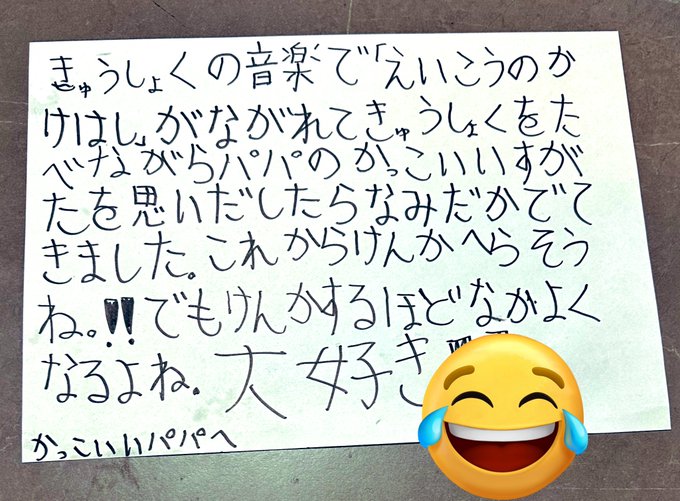 きゅうしょくの音楽で「えいこうのか
けはし」がながれてきゅうしょくをた
べながらパパのかっこいいすが
たを思いだしたらなみだかでて
きました。これからけんかへらそう
ね。!!でもけんかするほどなかよく
なるよね。大好き
かっこいいパパへ